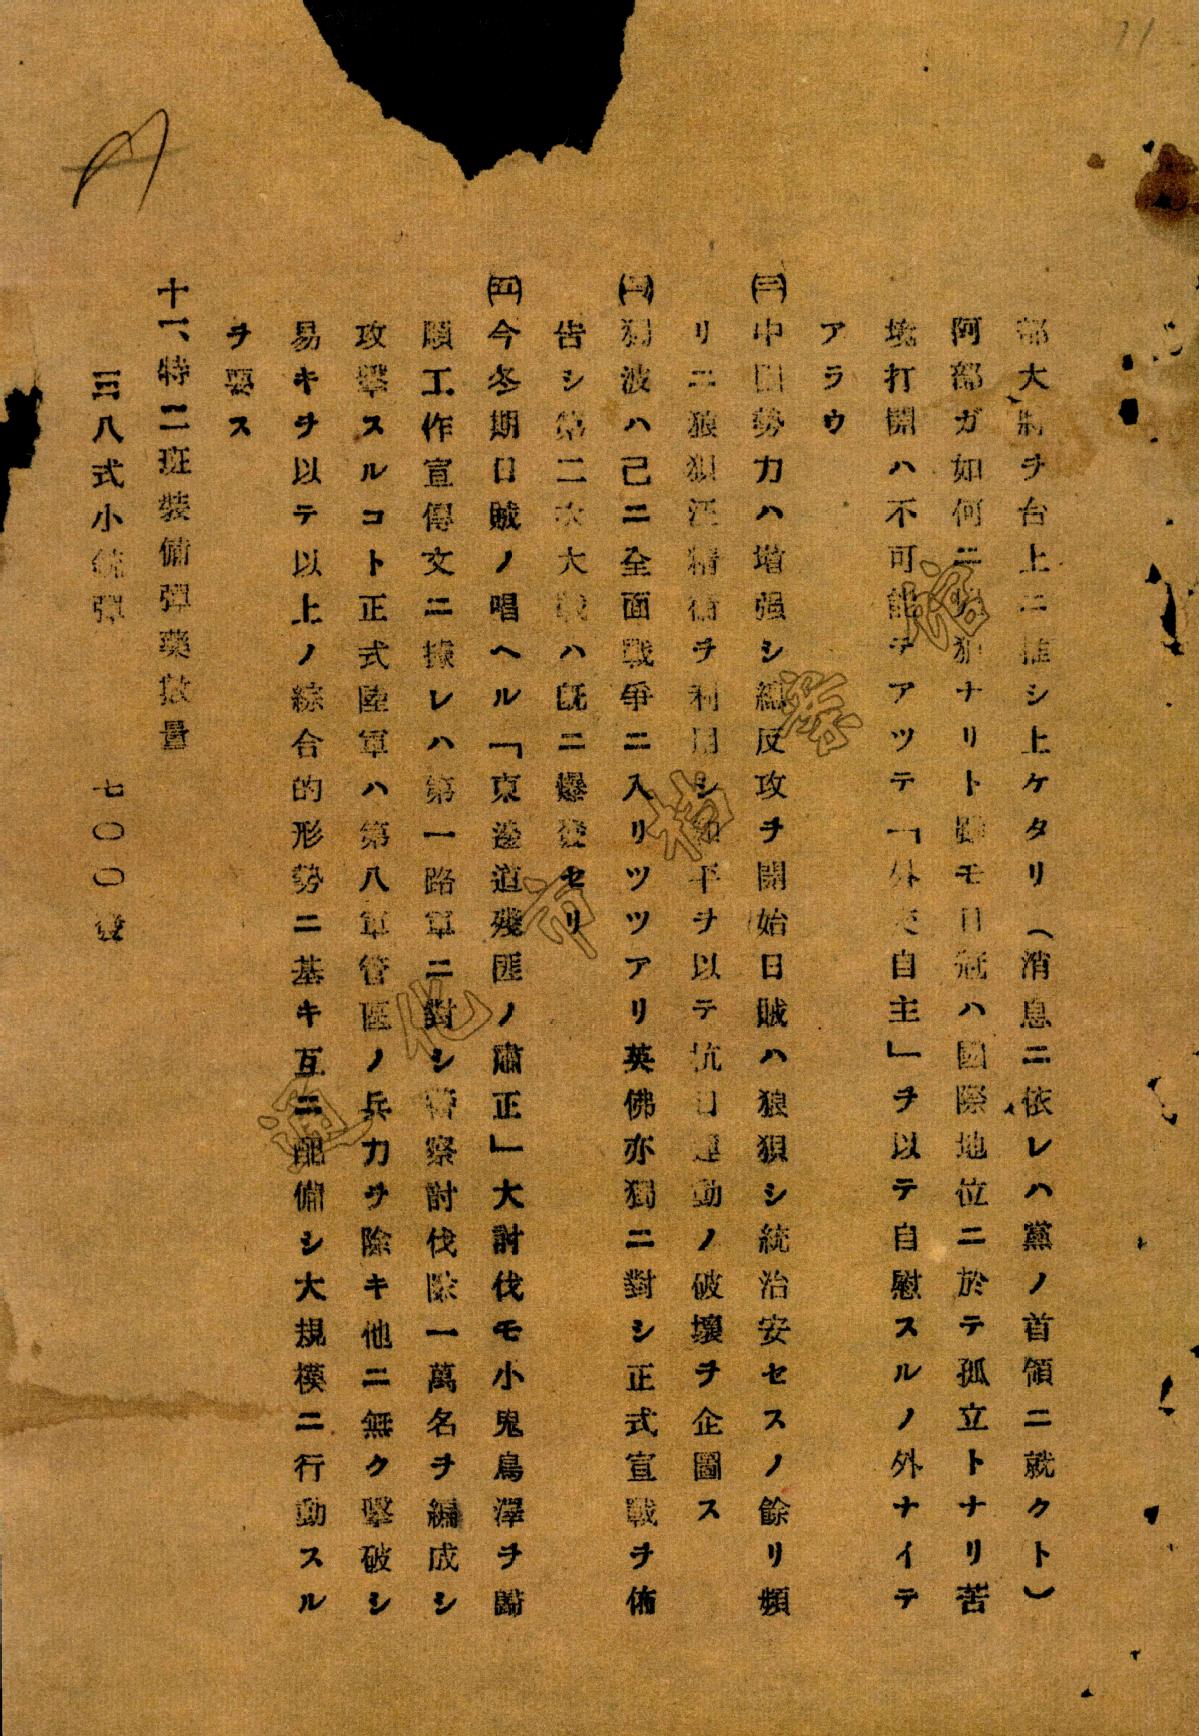 部大將ヲ台上ニ推シ上ケタリ（消息ニ依レハ黨ノ首領ニ就クト）
阿部ガ如何ニ ナリト雖モ日冠ハ國際地位ニ於テ孤立トナリ苦
境打開ハ不可能テアツテ「外交自主」ヲ以テ自慰スルノ外ナイテ
アラウ
㈢中國勢力ハ增强シ總反攻ヲ開始日賊ハ狼狽シ統治安セスノ餘リ頻
リニ狼狽汪精衞ヲ利用シ和平ヲ以テ抗日運動ノ破壞ヲ企圖ス
㈣獨波ハ己ニ全面戰爭ニ入リツツアリ英佛亦獨ニ對シ正式宣戰ヲ佈
告シ第二次大戰ハ既ニ爆發セリ
㈤今冬期日賊ノ唱ヘル「東邊道殘匪ノ肅正」大討伐モ小鬼鳥澤ヲ歸
順工作宣傳文ニ據レハ第一路軍ニ對シ警察討伐隊一萬名ヲ編成シ
攻擊スルコト正式陸軍ハ第八軍管區ノ兵力ヲ除キ他ニ無ク擊破シ
易キヲ以テ以上ノ綜合的形勢ニ基キ互ニ配備シ大規模ニ行動スル
ヲ要ス
十一、特二班裝備彈藥數量
三八式小銃彈 七〇〇發
通化市档案馆
11